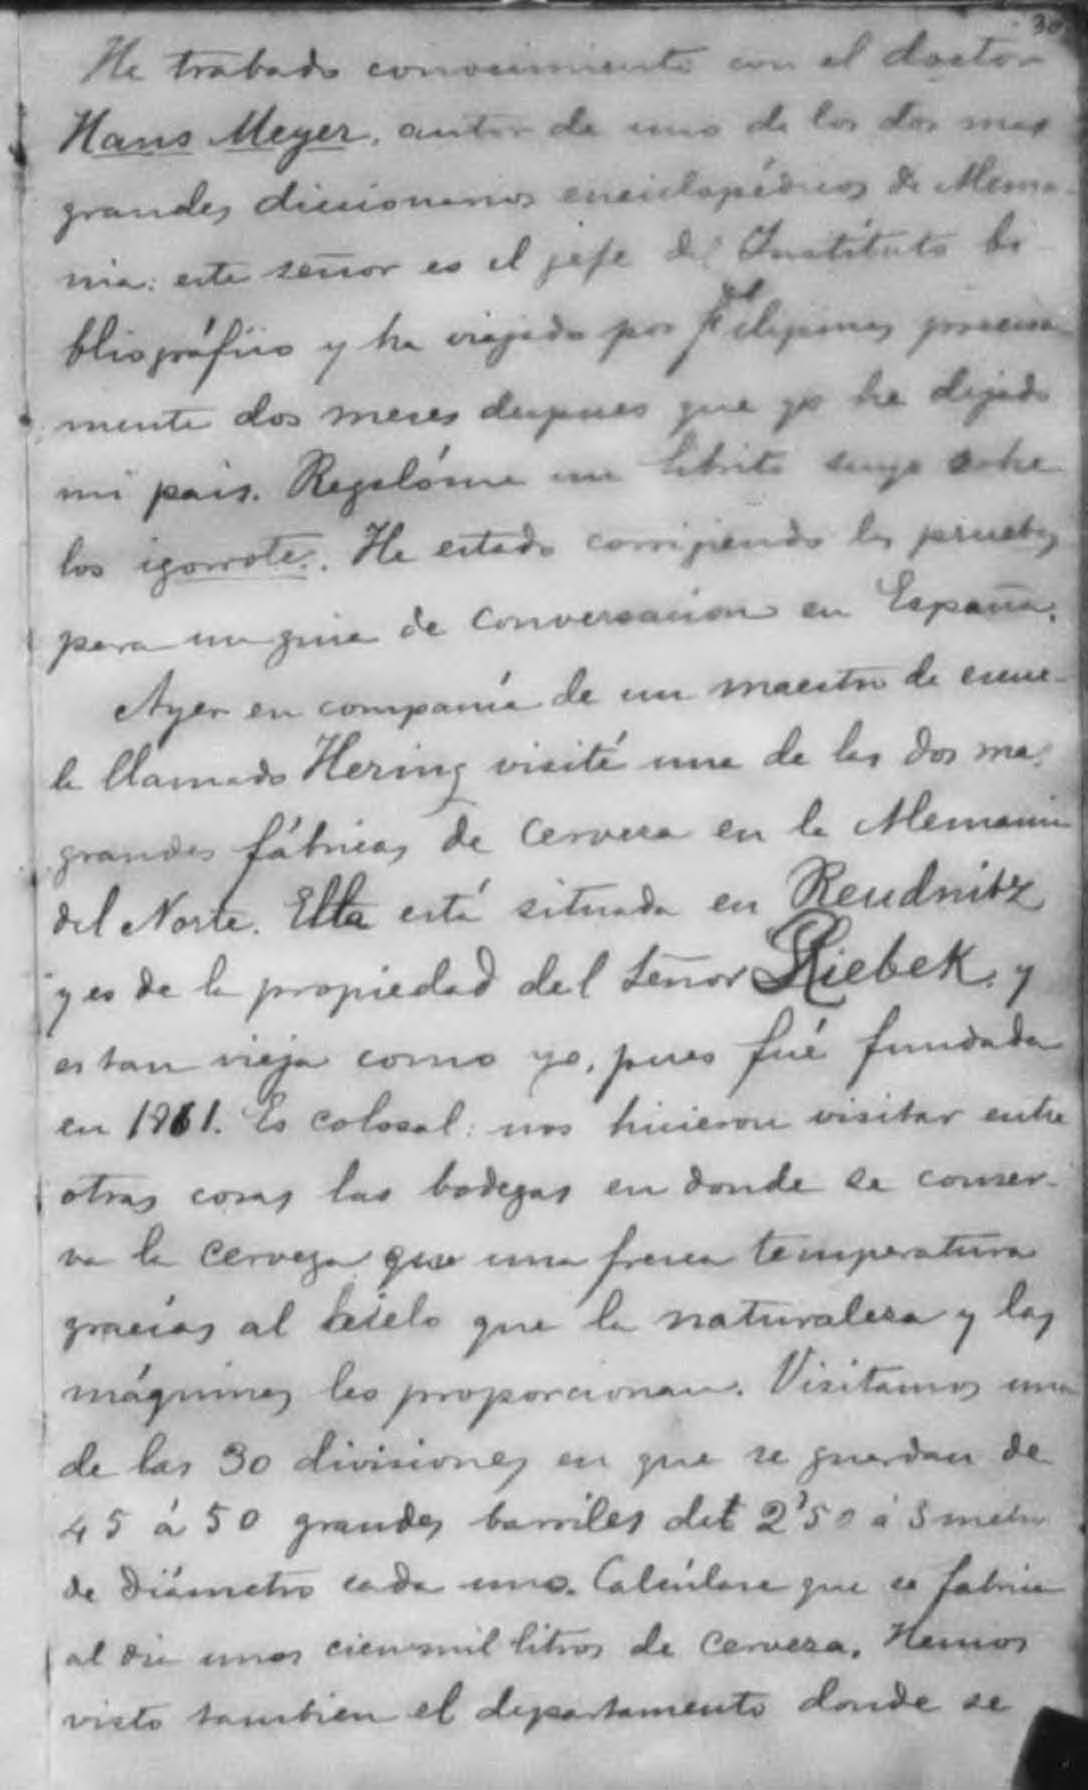 30
He trabado conocimiento con el doctor
Hans Meyer, autor de uno de los dos mas
grandes diccionarios enciclopédicos de Alema-
nia: este señor es el jefe del Instituto bi-
bliográfico y ha viajado por Filipinas precisa-
mente dos meses despues que yo he dejado
mi pais. Regalóme un librito suyo sobre
los igorrotes. He estado corrijiendo las pruebas
para un guia de conversacion en España.
Ayer en compañía de un maestro de escue-
la llamado Hering visité una de las dos mas
grandes fábricas de cerveza en la Alemania
del Norte. Ella está situada en Reudnitz
y es de la propiedad del Señor Riebek, y
es tan vieja como yo, pues fué fundada
en 1861. Es colosal: nos hicieron visitar entre
otras cosas las bodegas en donde se conser-
va la cerveza que una fresca temperatura
gracias al hielo que la naturaleza y las
máquinas les proporcionan. Visitamos una
de las 30 divisiones en que se guardan de
45 á 50 grandes barriles de 2'50 á 3 metros
de diámetro cada uno. Calcúlase que se fabrica
al dia unos cien mil litros de cerveza. Hemos
visto tambien el departamento donde se